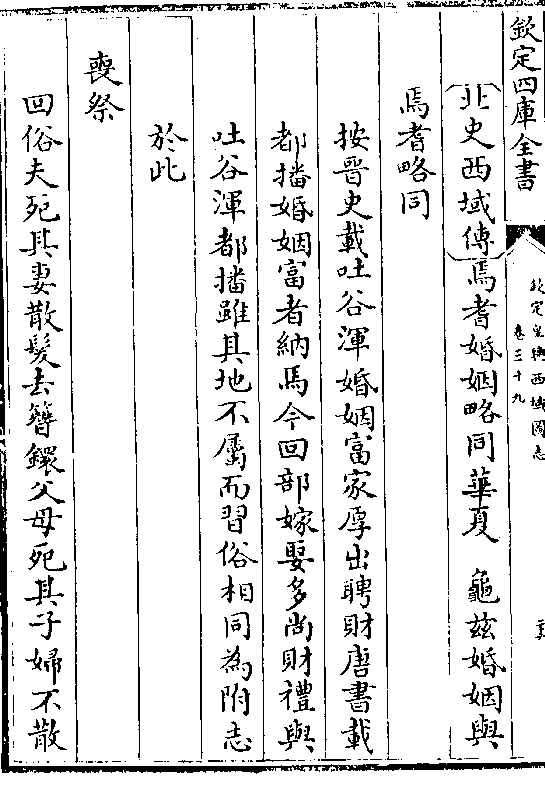 欽定四庫全書
欽定皇輿西域圖志
卷三十九
北史西域傳焉耆婚姻略同華夏 龜茲婚姻與
焉耆略同
按晉史載吐谷渾婚姻富家厚出聘財唐書載
都播婚姻富者納馬今回部嫁娶多尚財禮與
吐谷渾都播雖其地不屬而習俗相同為附志
於此
喪祭
回俗夫死其妻散髮去簪鐶父母死其子婦不散